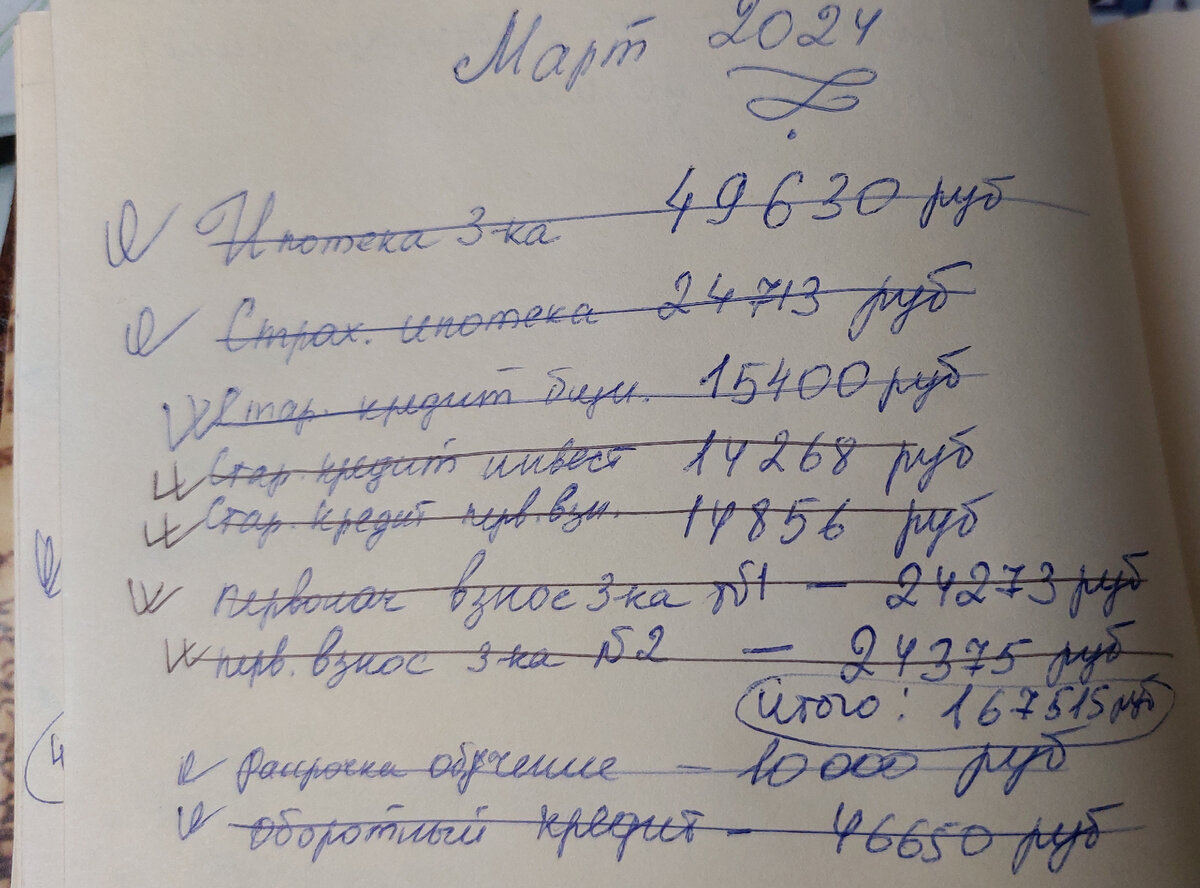 Март 2024
Ипотека 3-ка 49630 руб
Страх. ипотека 24713 руб
Стар. кредит бизн. 15400 руб
Стар. кредит инвест 14268 руб
Стар. кредит перв. взн. 14856 руб
первонач взнос 3-ка №1 — 24273 руб
перв. взнос 3-ка №2 — 24375 руб
Итого: 167515 руб
Рассрочка обучение — 10000 руб
Оборотный кредит — 46650 руб